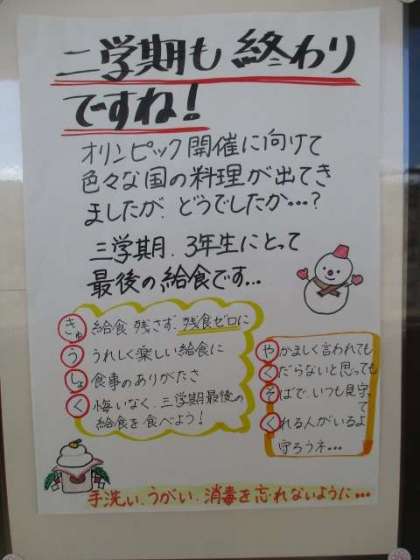 二学期も終わり
ですね！
オリンピック開催に向けて
色々な国の料理が出てき
ましたが、どうでしたか…？
三学期、3年生にとって
最後の給食です…
きゅ 給食 残さず、残食ゼロに
う うれしく楽しい給食に
しょ 食事のありがたさ
く 悔いなく、三学期最後の
給食を食べよう！
やかましく言われても
くだらないと思っても
そばで、いつも見守って
くれる人がいるよ
守ろうネ…
手洗い、うがい、消毒を忘れないように…